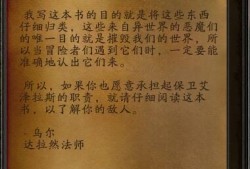 我写这本书的目的就是将这些东西
仔细归类，这些来自异世界的恶魔们
的唯一目的就是摧毁我们的世界，所
以当冒险者们遇到它们时，一定要能
准确地认出它们来。
所以，如果你也愿意承担起保卫艾
泽拉斯的职责，就请仔细阅读这本
书，以了解你的敌人。
- 乌尔
达拉然法师